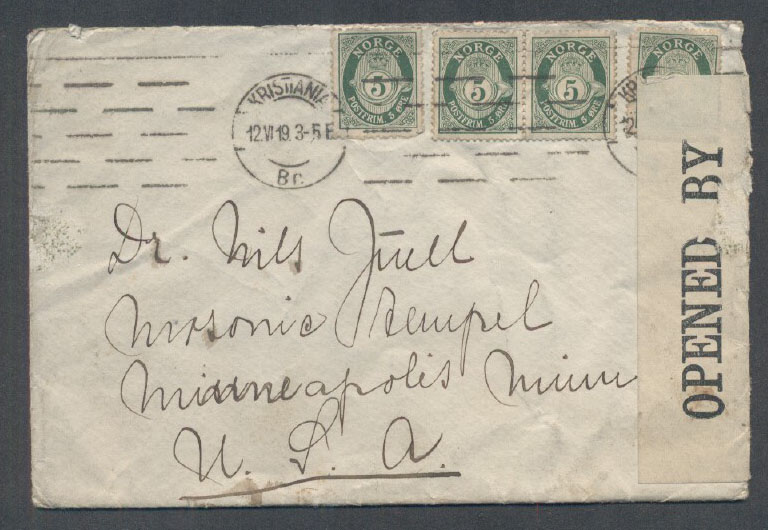 NORGE
5
POSTFRIM. 5 ØRE
NORGE
5
POSTFRIM. 5 ØRE
NORGE
5
POSTFRIM. 5 ØRE
NORGE
KRISTIANIA
12.VI 19. 3-5 E
Br.
OPENED BY
Dr. Nils Juell
Masonic Tempel
Minneapolis Minn
U. S. A.